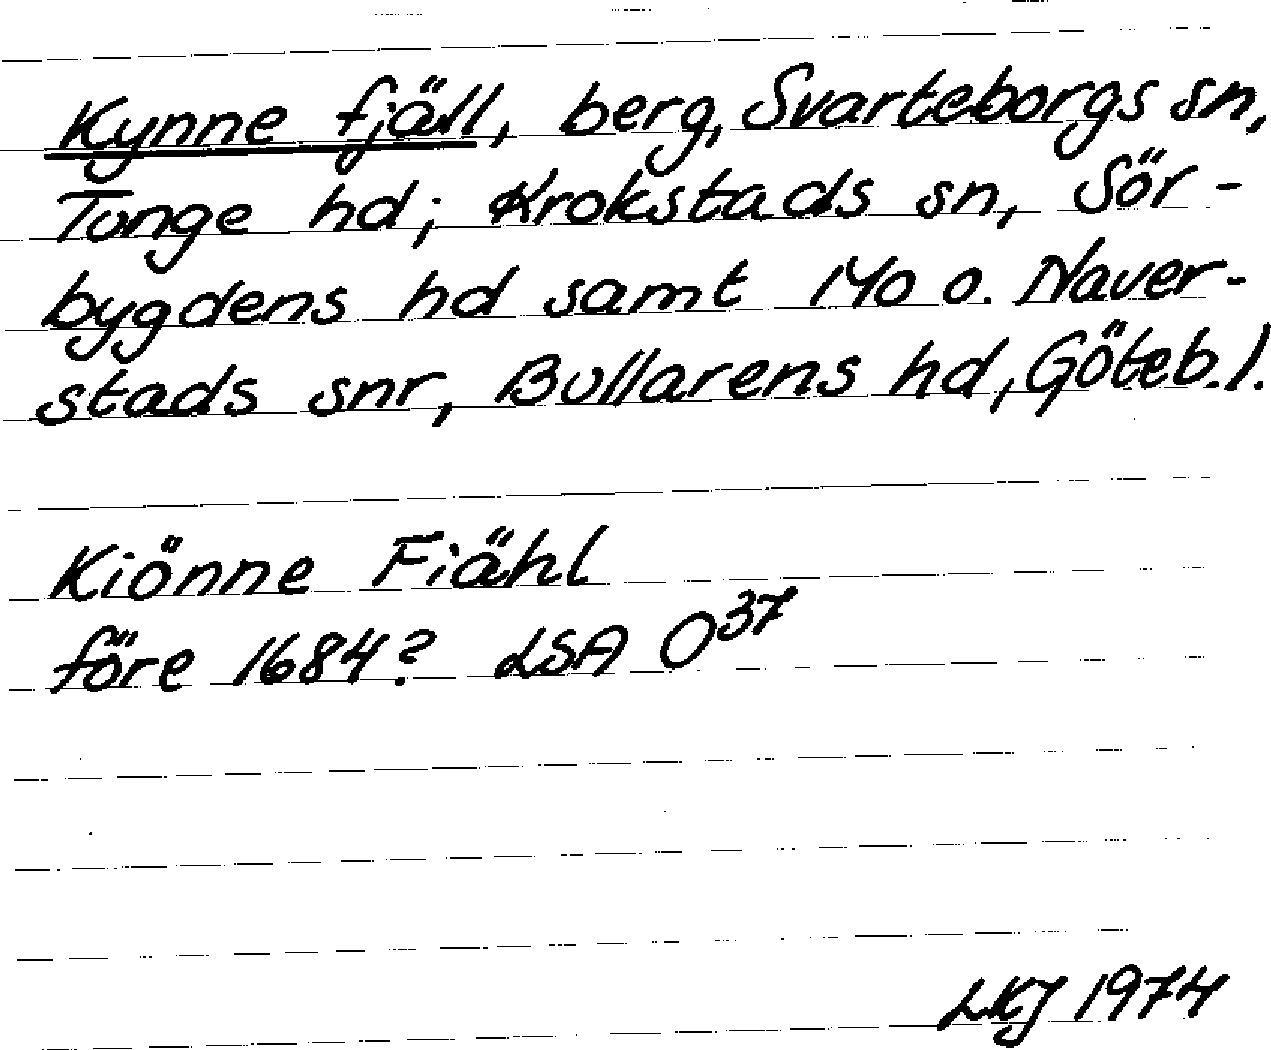 Kynne fjäll, berg, Svarteborgs sn,
Tunge hd; Krokstads sn, Sör-
bygdens hd samt Mo o. Naver-
stads snr, Bullarens hd, Göteb. l.
Kiönne Fiähl
före 1684? LSA O37
LKJ 1974